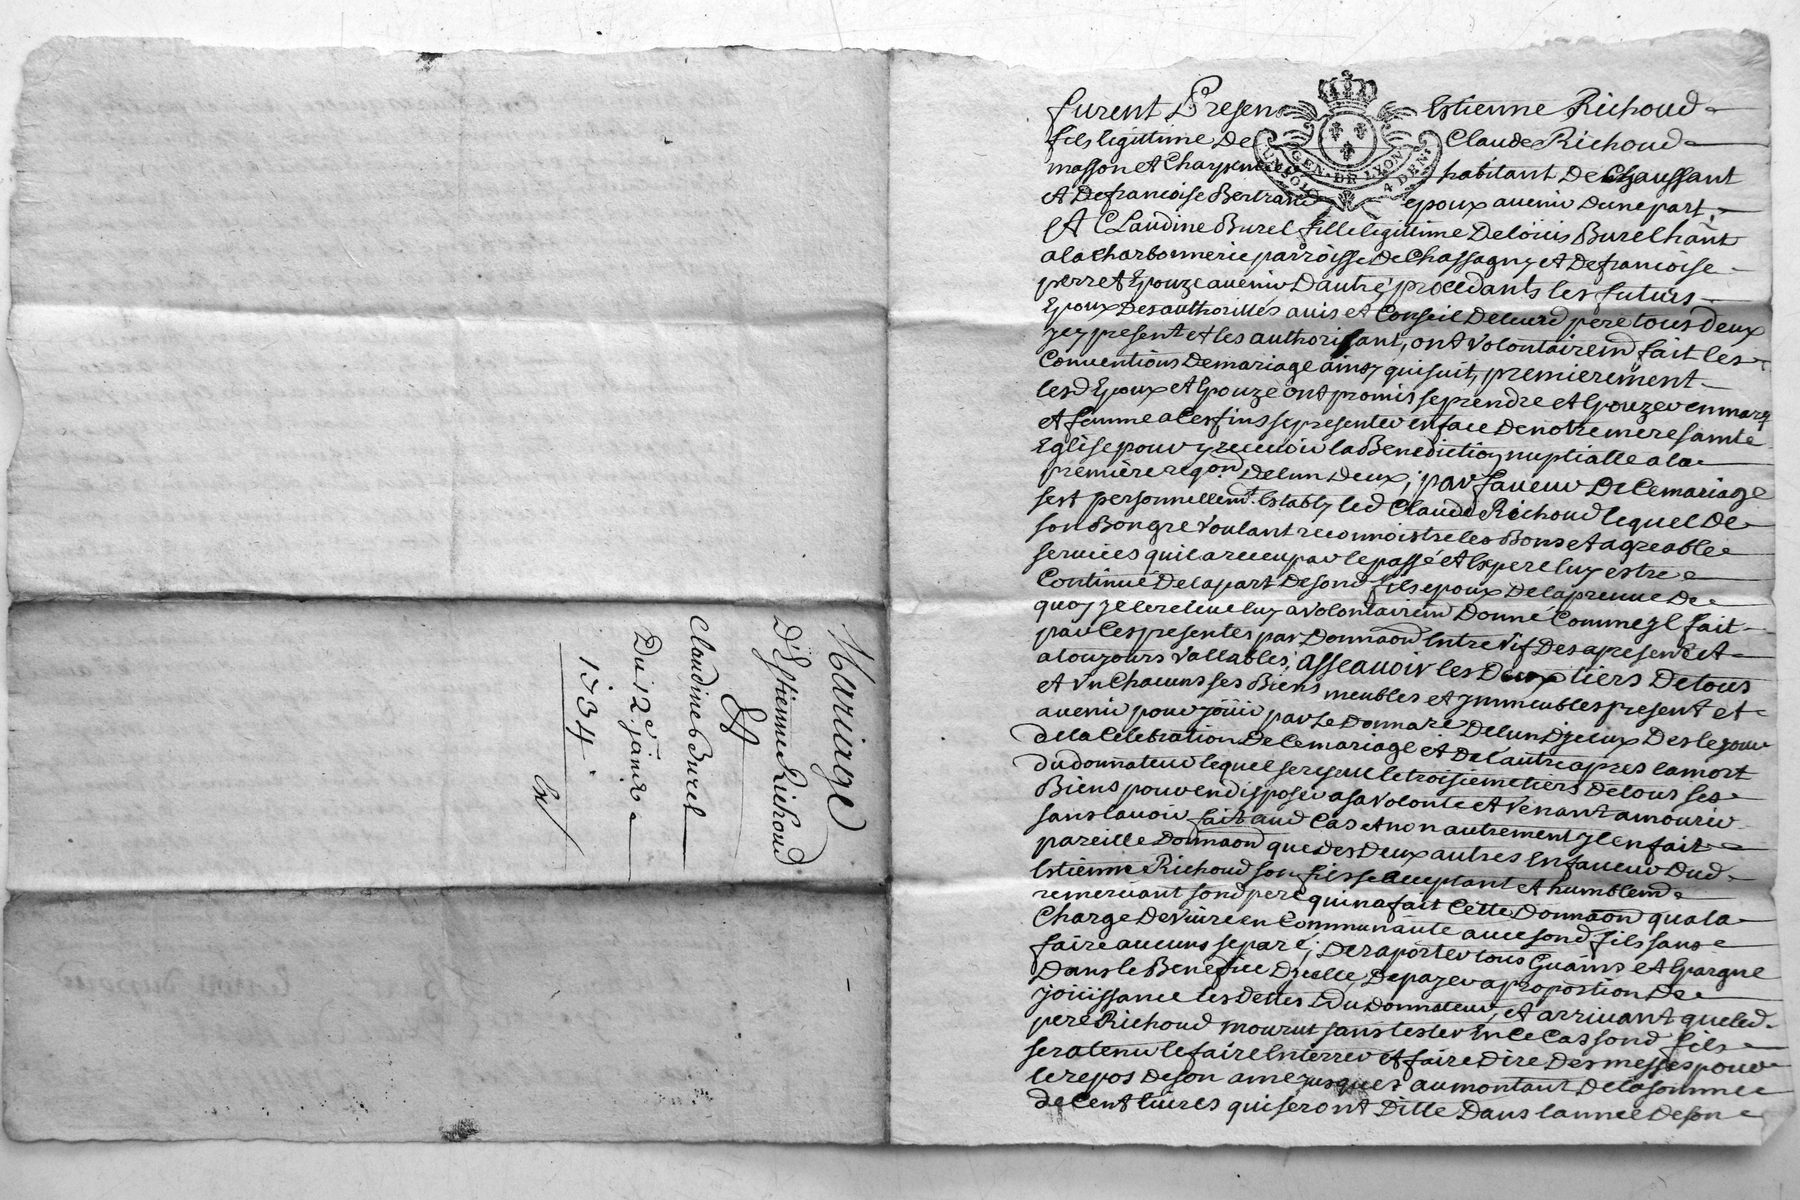 Mariage
D'Estienne Richoud
Et
Claudine Burel
Du 12e janvr
1734.
furent Presen Estienne Richoud
fils legitime De Claude Richoud
masson et Charpentier habitant De Chaussant
et De francoise Bertrand epoux avenir dune part,
GEN. DE LYON
UN SOL 4 DEN.
Et Claudine Burel fille legittime De loüis Burel hânt
a la charbonnerie parroisse De Chassagny et De francoise
perret Epouze avenir D'autre, procedants les futurs
Epoux Des authorittés avis et Conseil De leurd pere tous deux
icy present et les authorisant, ont volontairemd fait les
Conventions De mariage ainsy qui suit, premierement
lesd Epoux et Epouze ont promis se prendre et Epouzer en mary
et femme a ces fins se presenter en face De notre mere sainte
Eglise pour y recevoir la Benediction nuptialle a la
premiere reqon De lun Deux; par faveur De Ce mariage
sest personnellemt. Estably led Claude Richoud lequel De
son Bon gré voulant reconnoistre les Bons et agreable
services quil a receu par le passé et Espere luy estre
Continué De la part De sond fils epoux De la preuve De
quoy il le releve luy a volontairemt Donné Comme yl fait
par Ces presentes par Donnaon Entre vif Des apresent et
a toujours vallables; assçauoir les Deux tiers De tous
et un Chacuns ses Biens meubles et immeubles present et
avenir pour joüir par le Donnaré De lun Djceux Des le jour
De la Celebration De Ce mariage et De l'autre apres la mort
Du donnateur lequel se reserve le troisieme tiers De tous ses
Biens pour en disposer a sa volonté et venant a mourir
sans lavoir fait aud Cas et non autrement yl en fait
pareille Donnaon que des Deux autres En faveur Dud
Estienne Richoud son fils se acceptant et humblemt
remerciant sond pere qui na fait Cette Donnaon qua la
Charge De vivre en Communauté avec sond fils sans
faire aucuns separé; De raporter tous Guains et Epargne
Dans le Benefice Djcelle, De payer a proportion De
joüissance les Dettes Du Donnateur, et arrivant que led
pere Richoud mourut sans tester En Ce Cas sond fils
sera tenu le faire Enterrer et faire Dire Des messes pour
le repos De son ame jusques au montant De la somme
de Cent livres qui seront Ditte Dans l'année De son